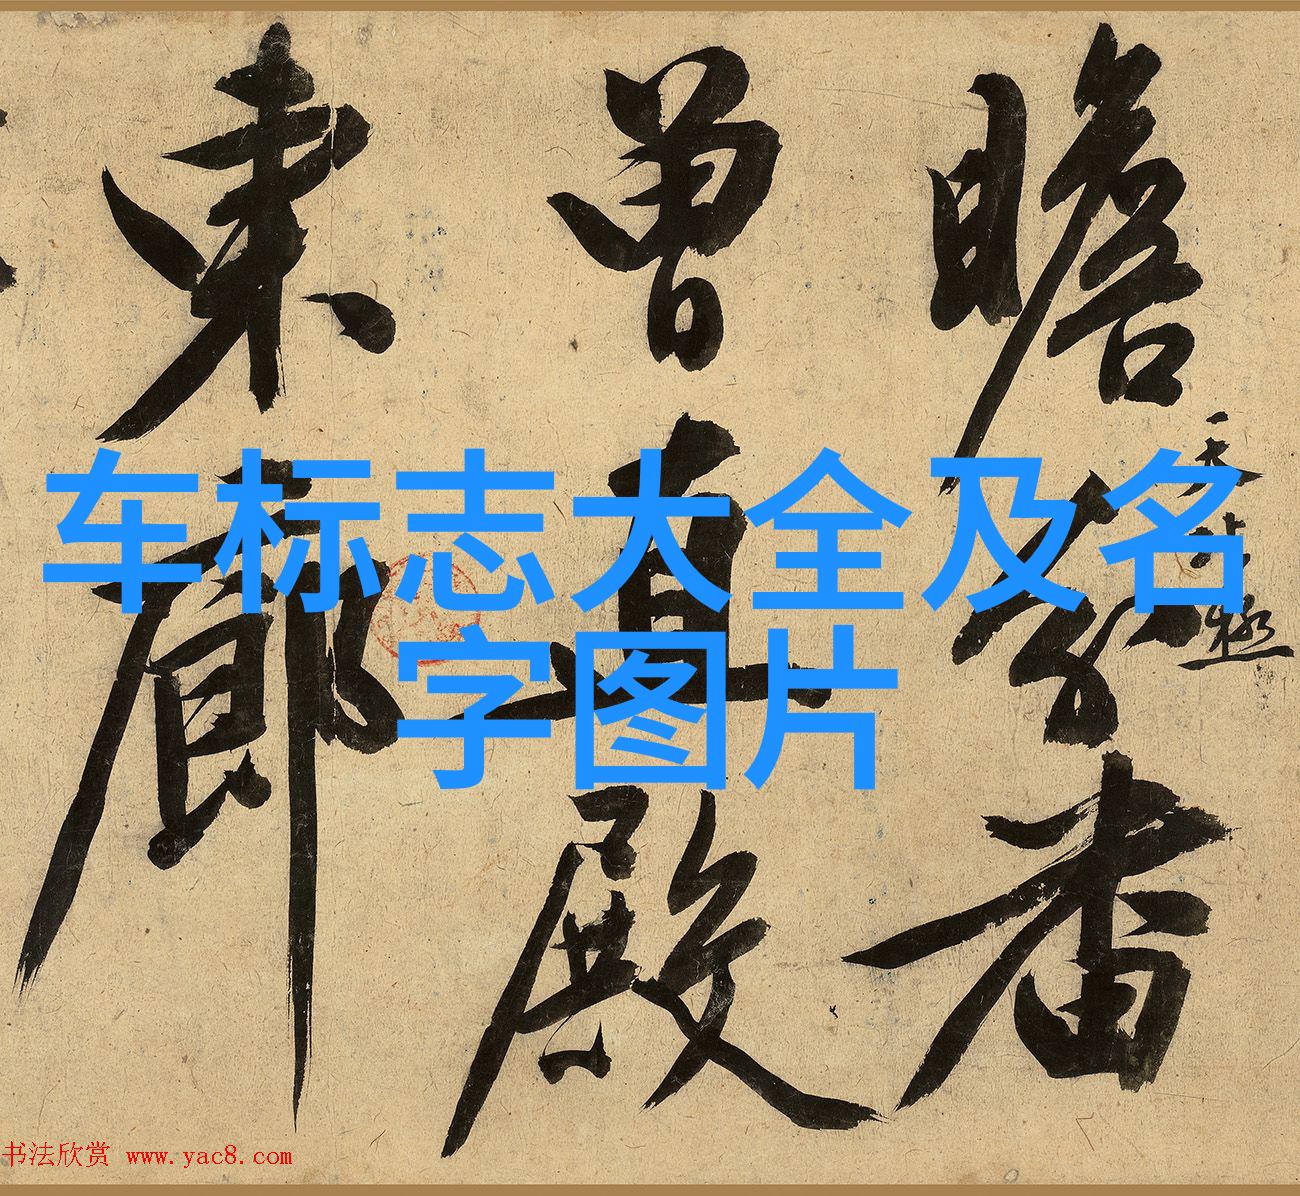 瞻
曾直殿
東廊
车标志大全及名
字图片
书法欣赏 www.yac8.com